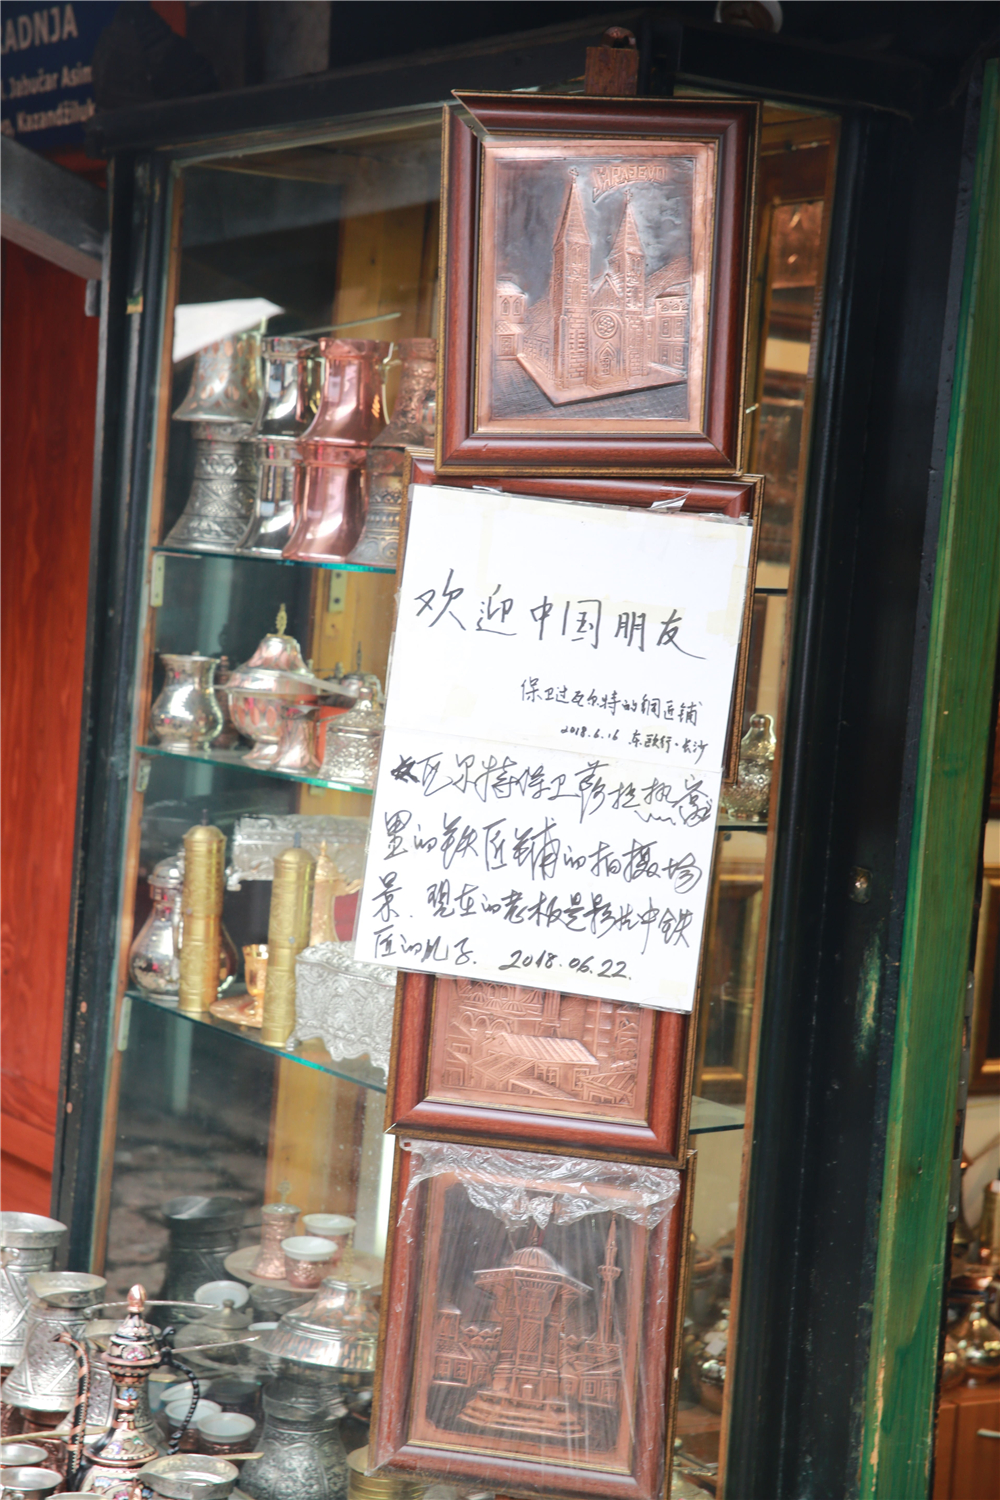 RADNJA
Jabučar Asim
Kazandžiluk
SARAJEVO
欢迎中国朋友
保卫过瓦尔特的铜匠铺
2018.6.16 东欧行·长沙
瓦尔特保卫萨拉热窝
里的铁匠铺的拍摄场
景.现在的老板是影片中铁
匠的儿子. 2018.06.22.